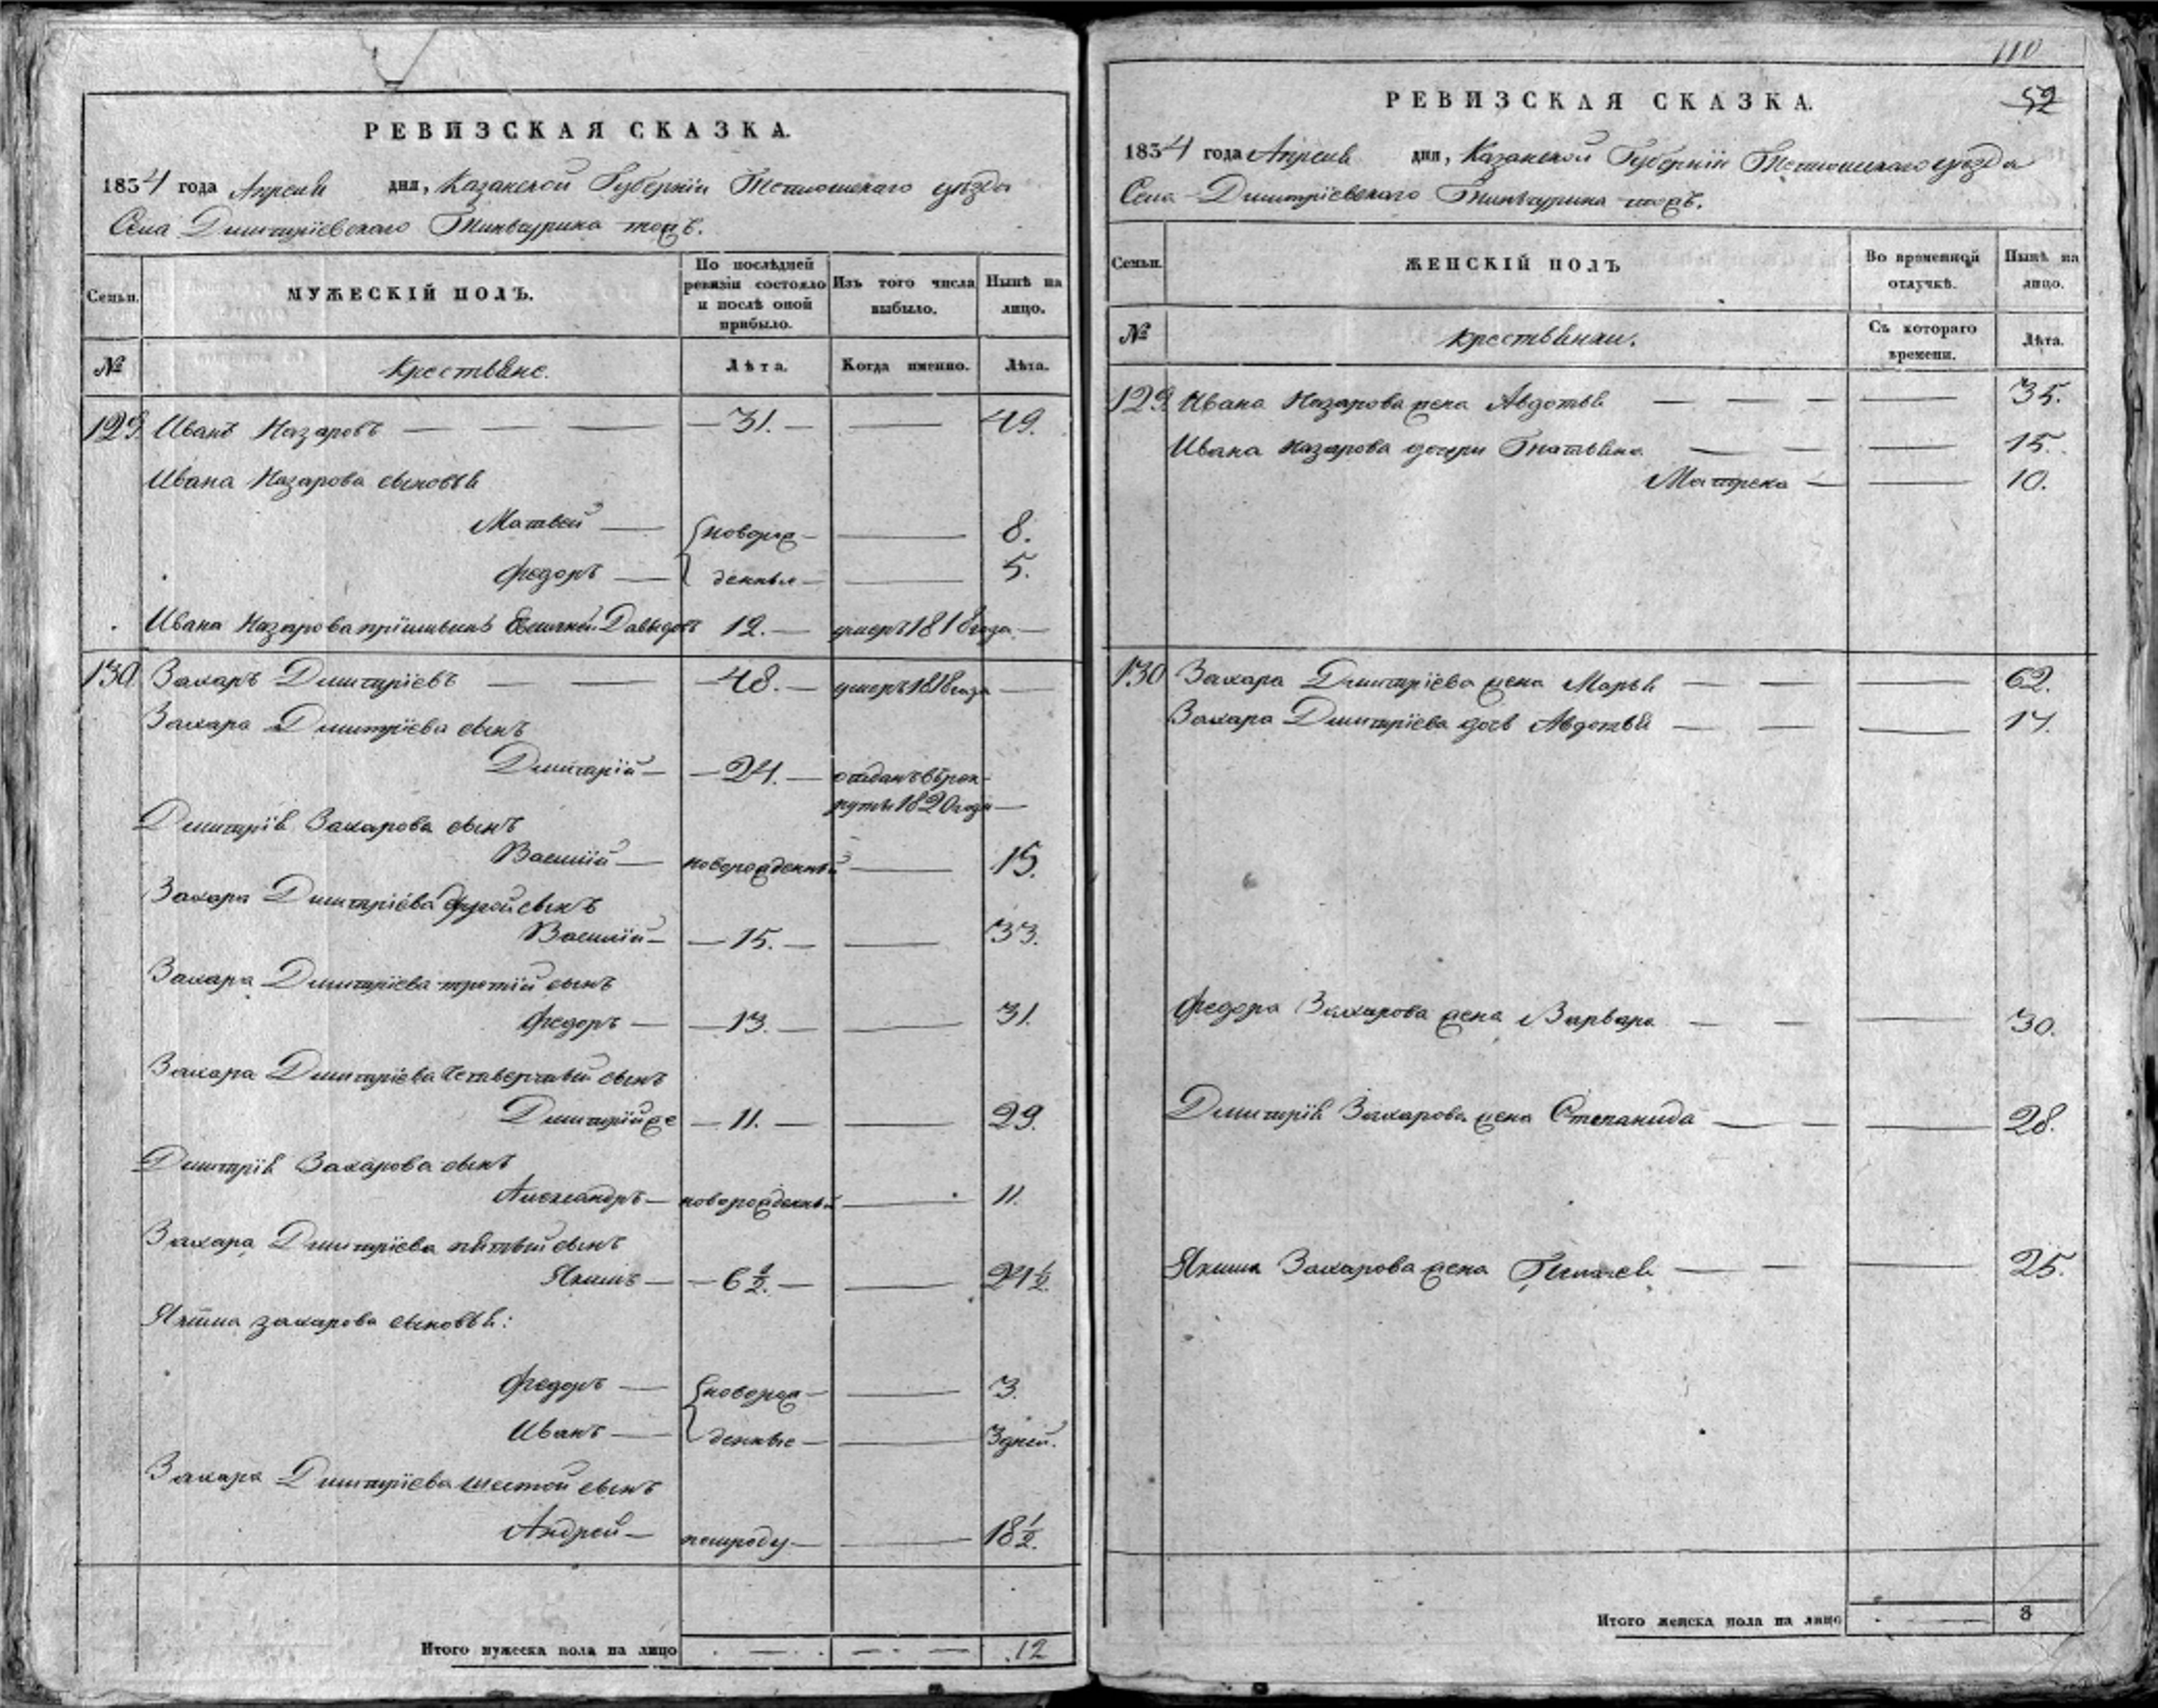 РЕВИЗСКАЯ СКАЗКА.
1834 года Апреля дня, Казанской Губернiи Тетюшскаго уѣзда
Села Дмитрiевскаго тожъ.
Семьи. МУЖЕСКIЙ ПОЛЪ. По послѣдней ревизiи состояло и послѣ оной прибыло. Изъ того числа выбыло. Нынѣ на лицо.
№ Крестьяне. Лѣта. Когда именно. Лѣта.
129. Иванъ Назаровъ — — — 31. — — 49.
Ивана Назарова сыновья
Матвей — новорож- — 8.
Федоръ — денныя — — 5.
Ивана Назарова Давыдовъ 12. — умеръ 1818 года —
130 Захаръ Дмитрiевъ — — 48. — умеръ 1818 года —
Захара Дмитрiева сынъ
Дмитрiй — — 24. — отданъ въ рек-
руты 1820 года —
Дмитрiя Захарова сынъ
Василiй — новорожденный — 15.
Захара Дмитрiева другой сынъ
Василiй — — 15. — — 33.
Захара Дмитрiева третiй сынъ
Федоръ — — 13. — — 31.
Захара Дмитрiева четвертый сынъ
Дмитрiй же — 11. — — 29.
Дмитрiя Захарова сынъ
Александръ — новорожденный — 11.
Захара Дмитрiева пятый сынъ
Якимъ — — 6 1/2. — — 24 1/2.
Якима Захарова сыновья:
Федоръ — новорож- — 3.
Иванъ — денные — — 3 дней.
Захара Дмитрiева шестой сынъ
Андрей — — 18 1/2.
Итого мужеска пола на лицо — — 12
110
52
РЕВИЗСКАЯ СКАЗКА.
1834 года Апреля дня, Казанской Губернiи Тетюшскаго уѣзда
Села Дмитрiевскаго тожъ.
Семьи. ЖЕНСКIЙ ПОЛЪ Во временной отлучкѣ. Нынѣ на лицо.
№ Крестьянки. Съ котораго времени. Лѣта.
129. Ивана Назарова жена Авдотья — — — — 35.
Ивана Назарова дочери Татьяна — — — 15.
Матрена — — 10.
130 Захара Дмитрiева жена Марья — — — — 62.
Захара Дмитрiева дочь Авдотья — — — 17.
Федора Захарова жена Варвара — — — 30.
Дмитрiя Захарова жена Степанида — — — 28.
Якима Захарова жена — — — 25.
Итого женска пола на лицо — 8